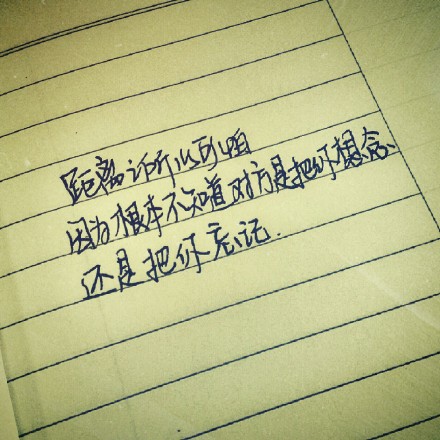 距离之所以可怕
因为根本不知道对方是把你想念、
还是把你忘记.